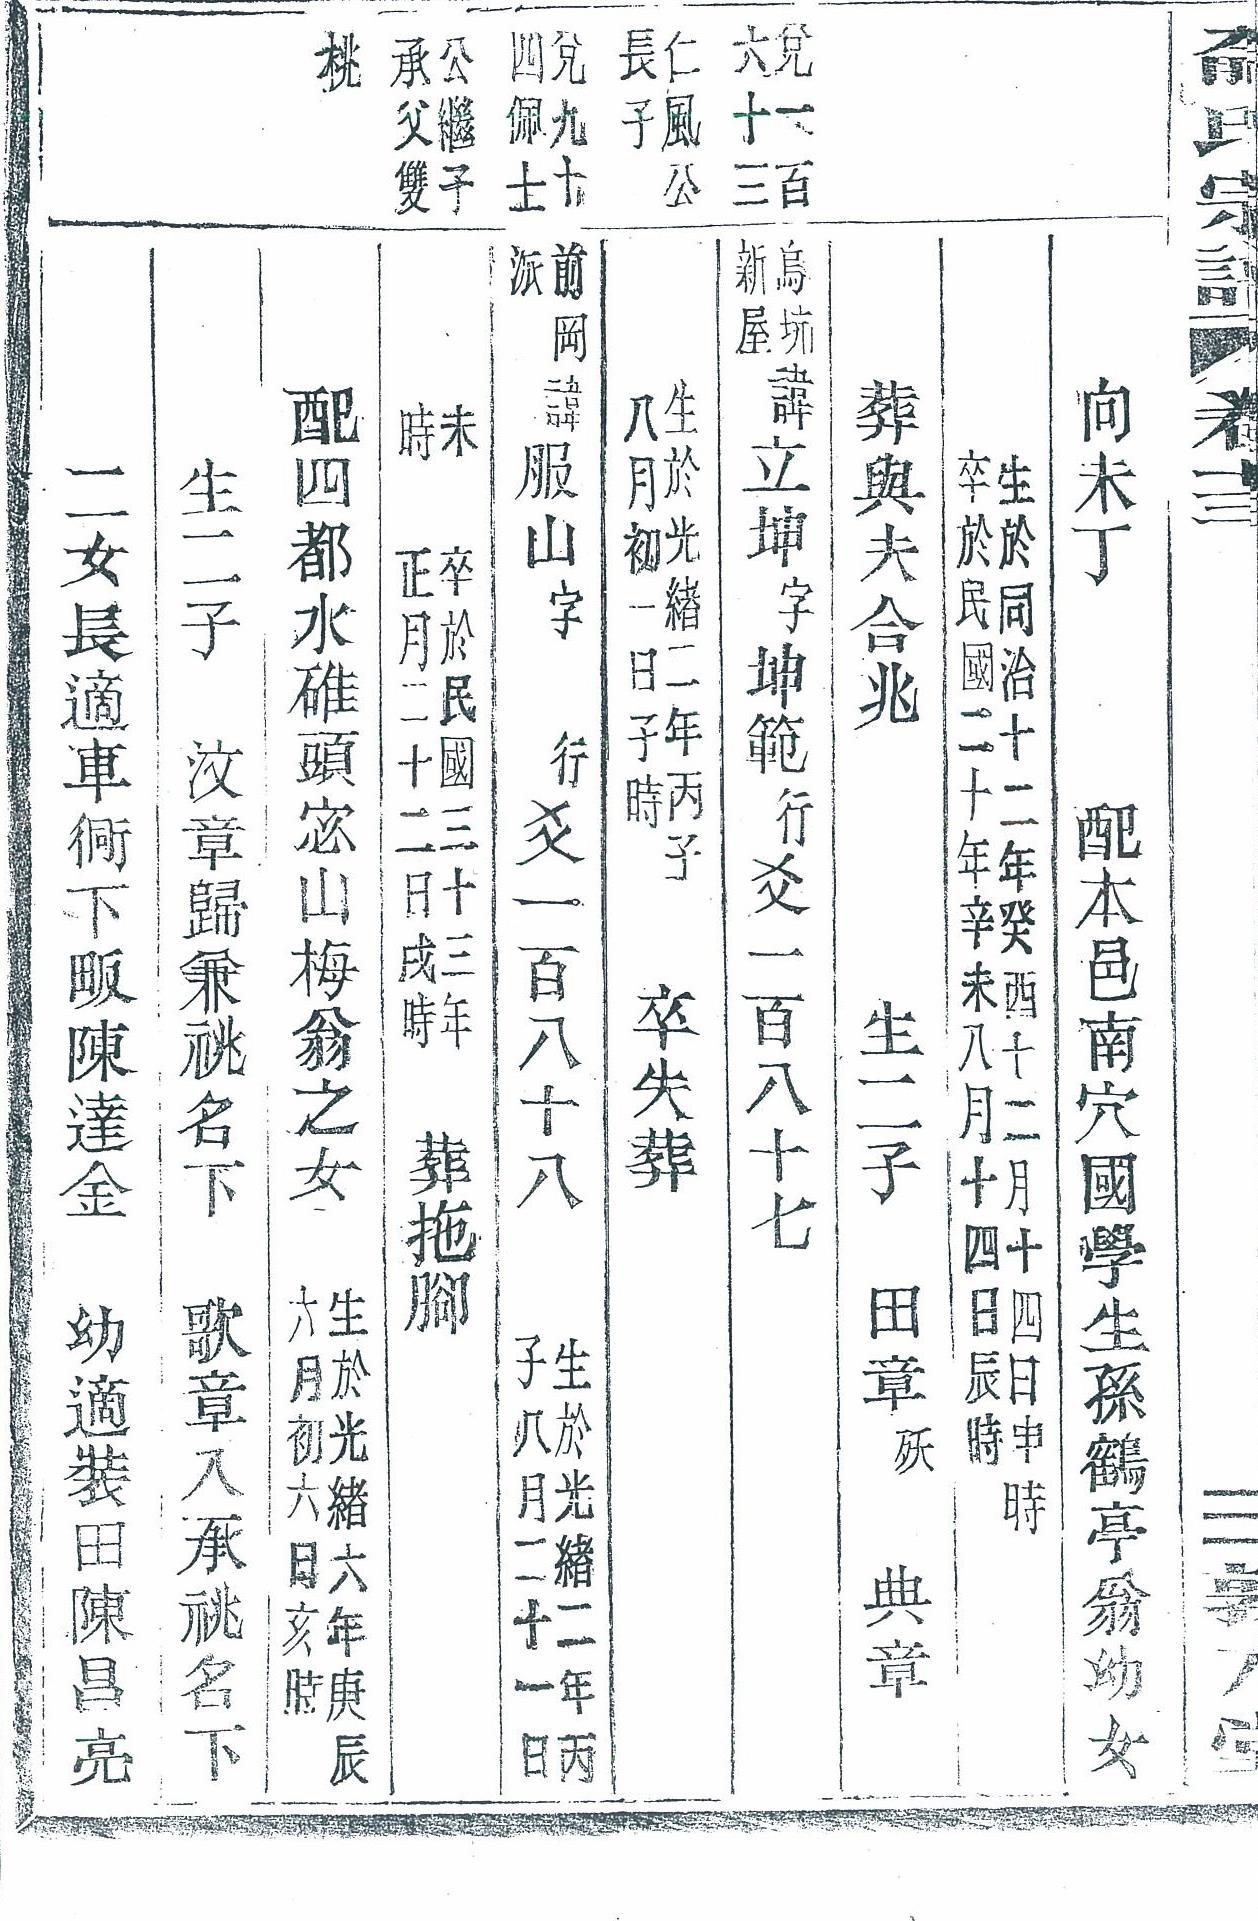 俞氏宗譜 卷十三
向未丁 配本邑南穴國學生孫鶴亭翁幼女
生於同治十二年癸酉十二月十四日申時
卒於民國二十年辛未八月十四日辰時
葬與夫合兆 生二子 田章 殀 典章
兌一百
六十三
烏坑
新屋
諱立坤字坤範行爻一百八十七
仁風公
長子
生於光緒二年丙子
八月初一日子時
卒失葬
兌九十
四佩士
前岡
派
諱服山字 行爻一百八十八
生於光緒二年丙
子八月二十一日
公繼子
承父雙
未
時
卒於民國三十三年
正月二十二日戌時
葬拖腳
桃
配四都水碓頭宓山梅翁之女
生於光緒六年庚辰
六月初六日亥時
生二子 汶章歸兼祧名下 歌章入承祧名下
二女長適車衕下畈陳達金 幼適裝田陳昌亮